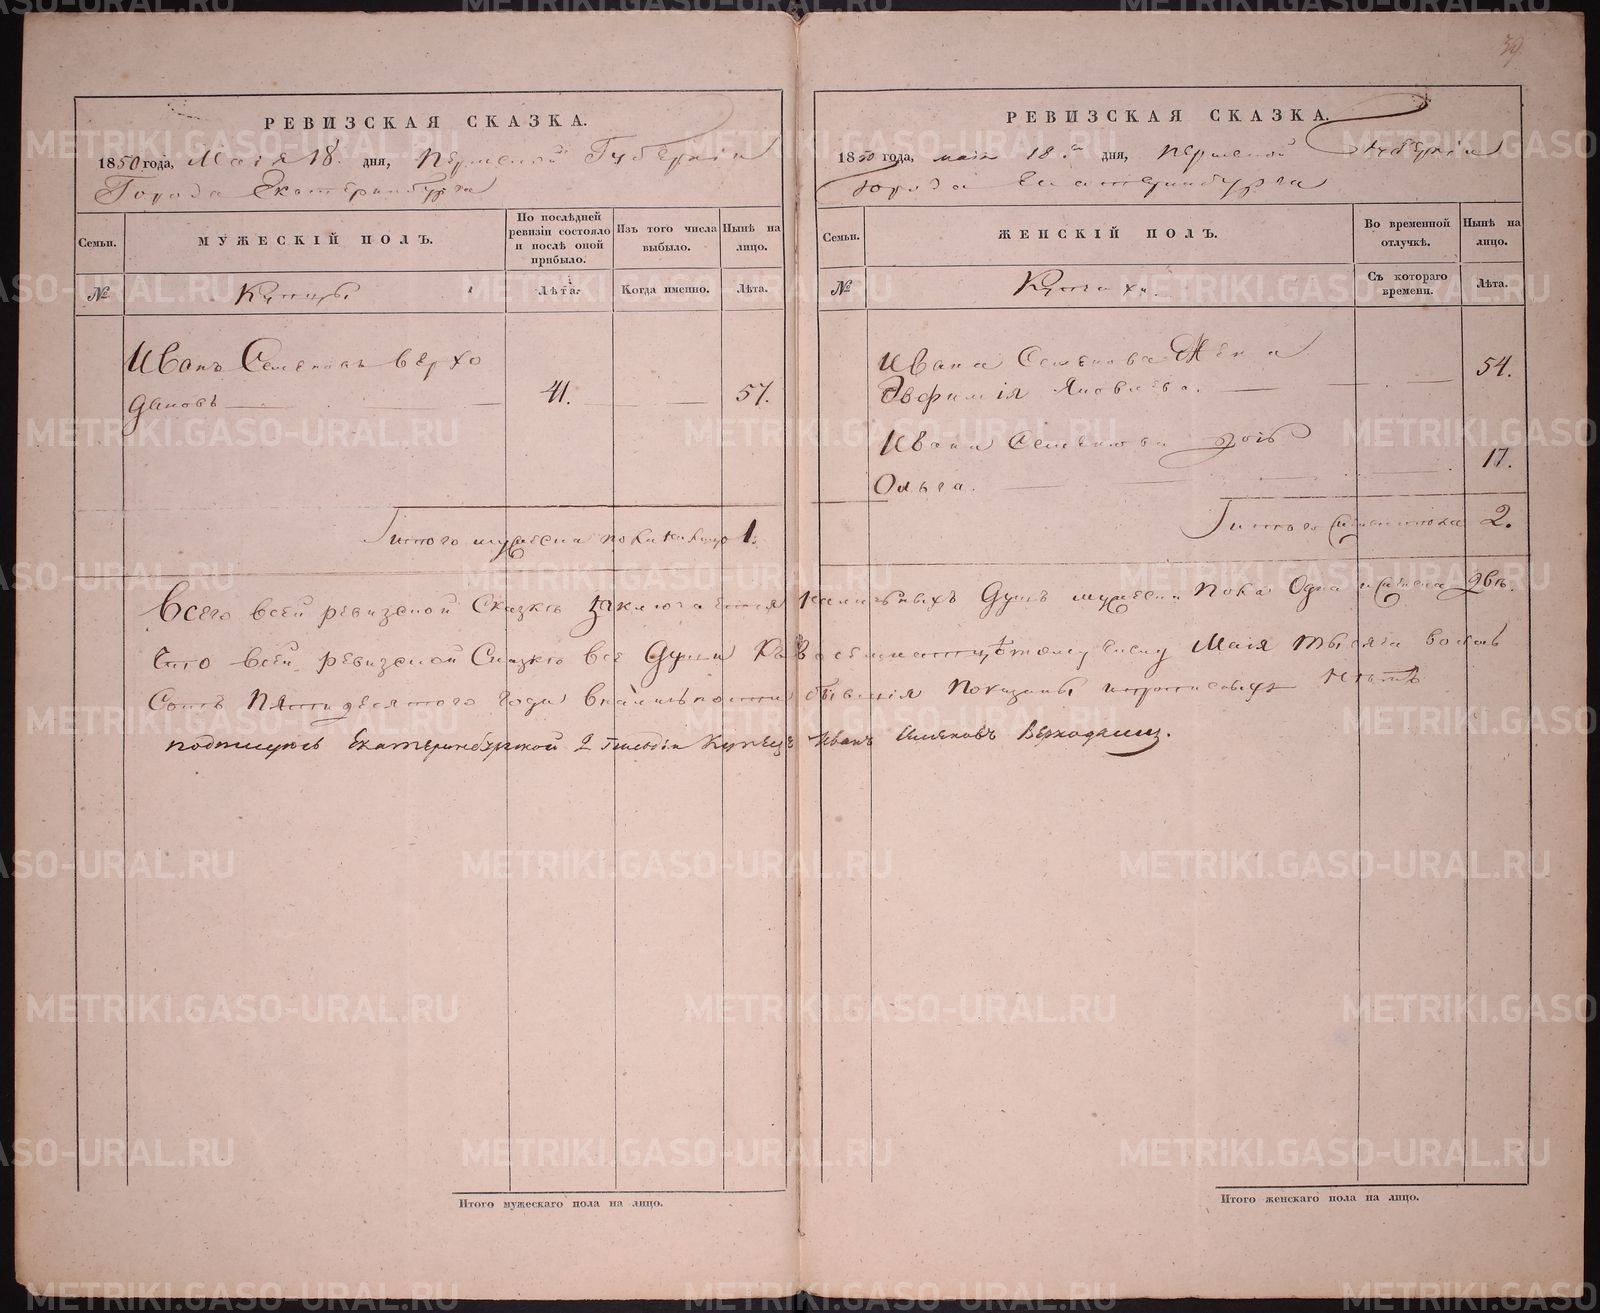 39
РЕВИЗСКАЯ СКАЗКА.
1850 года, Маія 18. дня, Пермской Губерніи
Города Екатеринбурга
Семьи.
МУЖЕСКІЙ ПОЛЪ.
По послѣдней ревизіи состояло и послѣ оной прибыло.
Изъ того числа выбыло.
Нынѣ на лицо.
№
Купцы
Лѣта.
Когда именно.
Лѣта.
Иванъ Семеновъ Верхо
дановъ
41.
57.
Итого мужеска пола на лицо 1.
РЕВИЗСКАЯ СКАЗКА.
1850 года, маія 18 дня, Пермской Губерніи
Города Екатеринбурга
Семьи.
ЖЕНСКІЙ ПОЛЪ.
Во временной отлучкѣ.
Нынѣ на лицо.
№
Съ котораго времени.
Лѣта.
Ивана Семенова Жена
Эвфимія Яковлева.
54.
Ивана Семенова дочь
Ольга.
17.
Итого женска пола 2.
Всего всей ревизской Сказкѣ заключается наличныхъ Душъ мужеска пола Одна и женска двѣ.
Что всей ревизской Сказкѣ все Души Къ Восемнатцотому числу Маія тысяча восемь
Сотъ Пятидесятого года вналичности бывшія показаны и прописныхъ нѣтъ
подпишусь Екатеринбурской 2 Гильдіи Купецъ Иванъ Семеновъ Верходановъ.
Итого мужескаго пола на лицо.
Итого женскаго пола на лицо.
METRIKI.GASO-URAL.RU